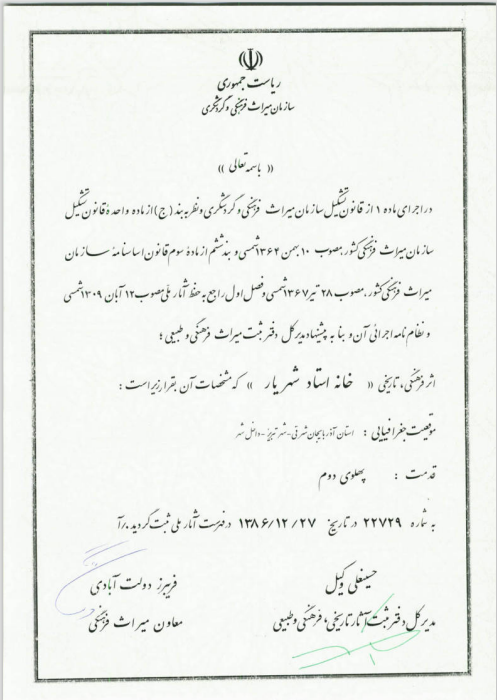 ریاست جمهوری
سازمان میراث فرهنگی و گردشگری
« باسمه تعالی »
در اجرای ماده ۱ از قانون تشکیل سازمان میراث فرهنگی و گردشگری و نظر به بند (ج) از ماده واحدهٔ قانون تشکیل
سازمان میراث فرهنگی کشور، مصوب ۱۰ بهمن ۱۳۶۴ شمسی و بند ششم از مادهٔ سوم قانون اساسنامهٔ سازمان
میراث فرهنگی کشور، مصوب ۲۸ تیر ۱۳۶۷ شمسی و فصل اول راجع به حفظ آثار ملی مصوب ۱۲ آبان ۱۳۰۹ شمسی
و نظام نامه اجرائی آن و بنا به پیشنهاد مدیر کل دفتر ثبت میراث فرهنگی و طبیعی ؛
اثر فرهنگی، تاریخی « خانه استاد شهریار » که مشخصات آن بقرار زیر است :
موقعیت جغرافیایی : استان آذربایجان شرقی - شهر تبریز - داخل شهر
قدمت : پهلوی دوم
به شماره ۲۲۷۲۹ در تاریخ ۱۳۸۶/۱۲/۲۷ در فهرست آثار ملی ثبت گردید ./آ
حسینعلی وکیل
مدیر کل دفتر ثبت آثار تاریخی، فرهنگی و طبیعی
فریبرز دولت آبادی
معاون میراث فرهنگی